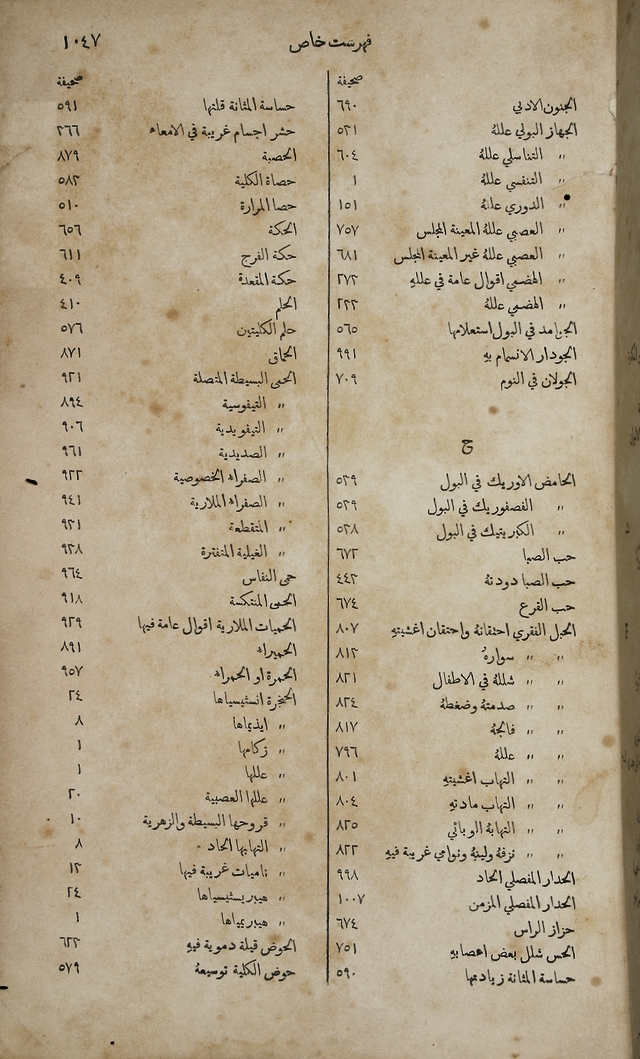 فهرست خاص ١٠٤٧
صحيفة
الجنون الادبي ٦٩٠
الجهاز البولي عللهُ ٥٢١
〃 التناسلي عللهُ ٦٠٤
〃 التنفسي عللهُ ١
〃 الدوري عللهُ ١٥١
〃 العصبي عللهُ المعينة المجلس ٧٥٧
〃 العصبي عللهُ غير المعينة المجلس ٦٨١
〃 الهضمي اقوال عامة في عللهِ ٢٧٢
〃 الهضمي عللهُ ٢٢٢
الجامد في البول استعلامها ٥٦٥
الجودار الانسمام بهِ ٩٩١
الجولان في النوم ٧٠٩
ح
الحامض الاوريك في البول ٥٢٩
〃 الفصفوريك في البول ٥٢٩
〃 الكبريتيك في البول ٥٢٨
حب الصبا ٦٧٢
حب الصبا دودتهُ ٤٤٢
حب القرع ٦٧٤
الحبل الفقري احتقانهُ واحتقان اغشيتهِ ٨٠٧
〃 〃 سوارهُ ٨١٢
〃 〃 شللهُ في الاطفال ٨٢١
〃 〃 صدمتهُ وضغطهُ ٨٢٤
〃 〃 فالجهُ ٨١٧
〃 〃 عللهُ ٧٩٦
〃 〃 التهاب اغشيتهِ ٨٠١
〃 〃 التهاب مادتهِ ٨٠٤
〃 〃 التهابهُ الوبائي ٨٢٥
〃 〃 نزفهُ ولينهُ ونوامي غريبة فيهِ ٨٢٢
الحدار المفصلي الحاد ٩٩٨
الحدار المفصلي المزمن ١٠٠٧
حزاز الراس ٦٧٤
الحس شلل بعض اعصابهِ ٧٥١
حساسة المثانة زيادتها ٥٩٠
صحيفة
حساسة المثانة قلتها ٥٩١
حشر اجسام غريبة في الامعاء ٢٦٦
الحصبة ٨٧٩
حصاة الكلية ٥٨٢
حصا المرارة ٥١٠
الحكة ٦٥٦
حكة الفرج ٦١١
حكة المقعدة ٤٠٩
الحلم ٤١٠
حلم الكليتين ٥٧٦
الحماق ٨٧١
الحمى البسيطة المتصلة ٩٢١
〃 التيفوسية ٨٩٤
〃 التيفويدية ٩٠٦
〃 الصديدية ٩٦١
〃 الصفراء الخصوصية ٩٢٢
〃 الصفراء الملارية ٩٤١
〃 المتقطعة ٩٢١
〃 الغيلية المنفترة ٩٢٨
حمى النفاس ٩٦٤
الحمى المنتكسة ٩١٨
الحميات الملارية اقوال عامة فيها ٩٢٩
الحميراء ٨٩١
الحمرة او الحمراء ٩٥٧
الحنجرة انستيسياها ٢٤
〃 ايذيماها ٨
〃 زكامها ١
〃 عللها ١
〃 عللها العصبية ٢٠
〃 قروحها البسيطة والزهرية ١٠
〃 التهابها الحاد ٨
〃 ناميات غريبة فيها ١٢
〃 هيبرستيسياها ٢٤
〃 هيبريمياها ١
الحوض قيلة دموية فيهِ ٦٢٢
حوض الكلية توسيعهُ ٥٧٩